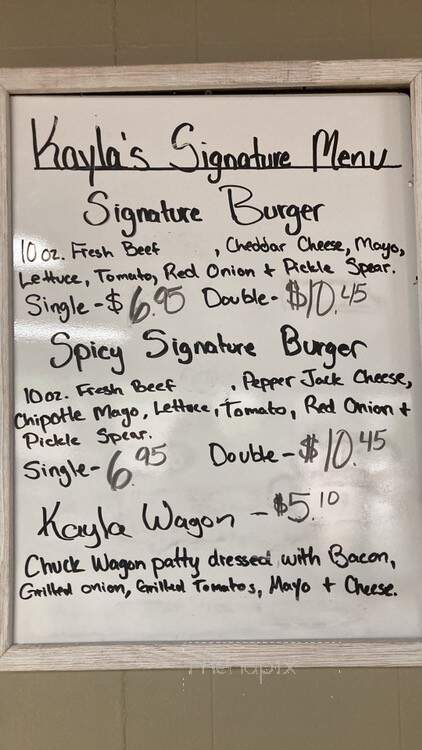 Kayla's Signature Menu
Signature Burger
10 oz. Fresh Beef , Cheddar Cheese, Mayo,
Lettuce, Tomato, Red Onion + Pickle Spear.
Single - $6.95 Double - $10.45
Spicy Signature Burger
10 oz. Fresh Beef , Pepper Jack Cheese,
Chipotle Mayo, Lettuce, Tomato, Red Onion +
Pickle Spear.
Single - 6.95 Double - $10.45
Kayla Wagon - $5.10
Chuck Wagon patty dressed with Bacon,
Grilled onion, Grilled Tomatos, Mayo + Cheese.
menupix